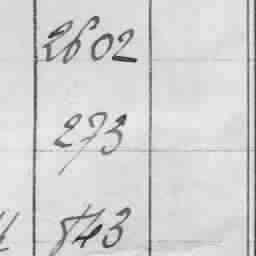 2602
273
843